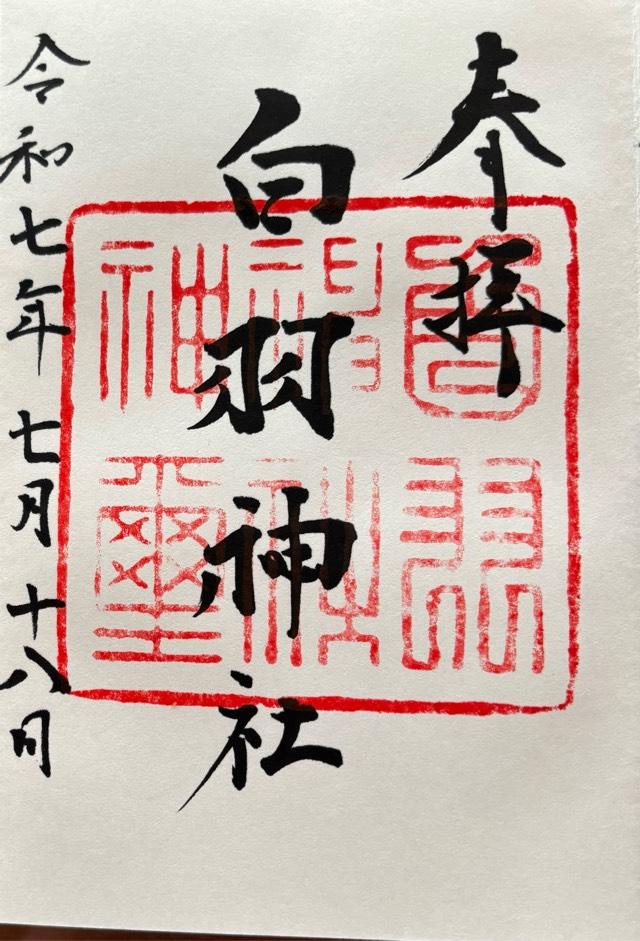 奉拝
白羽神社
令和七年七月十八日